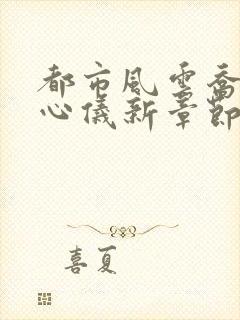 都市風雲喬
心儀新章節
喜夏